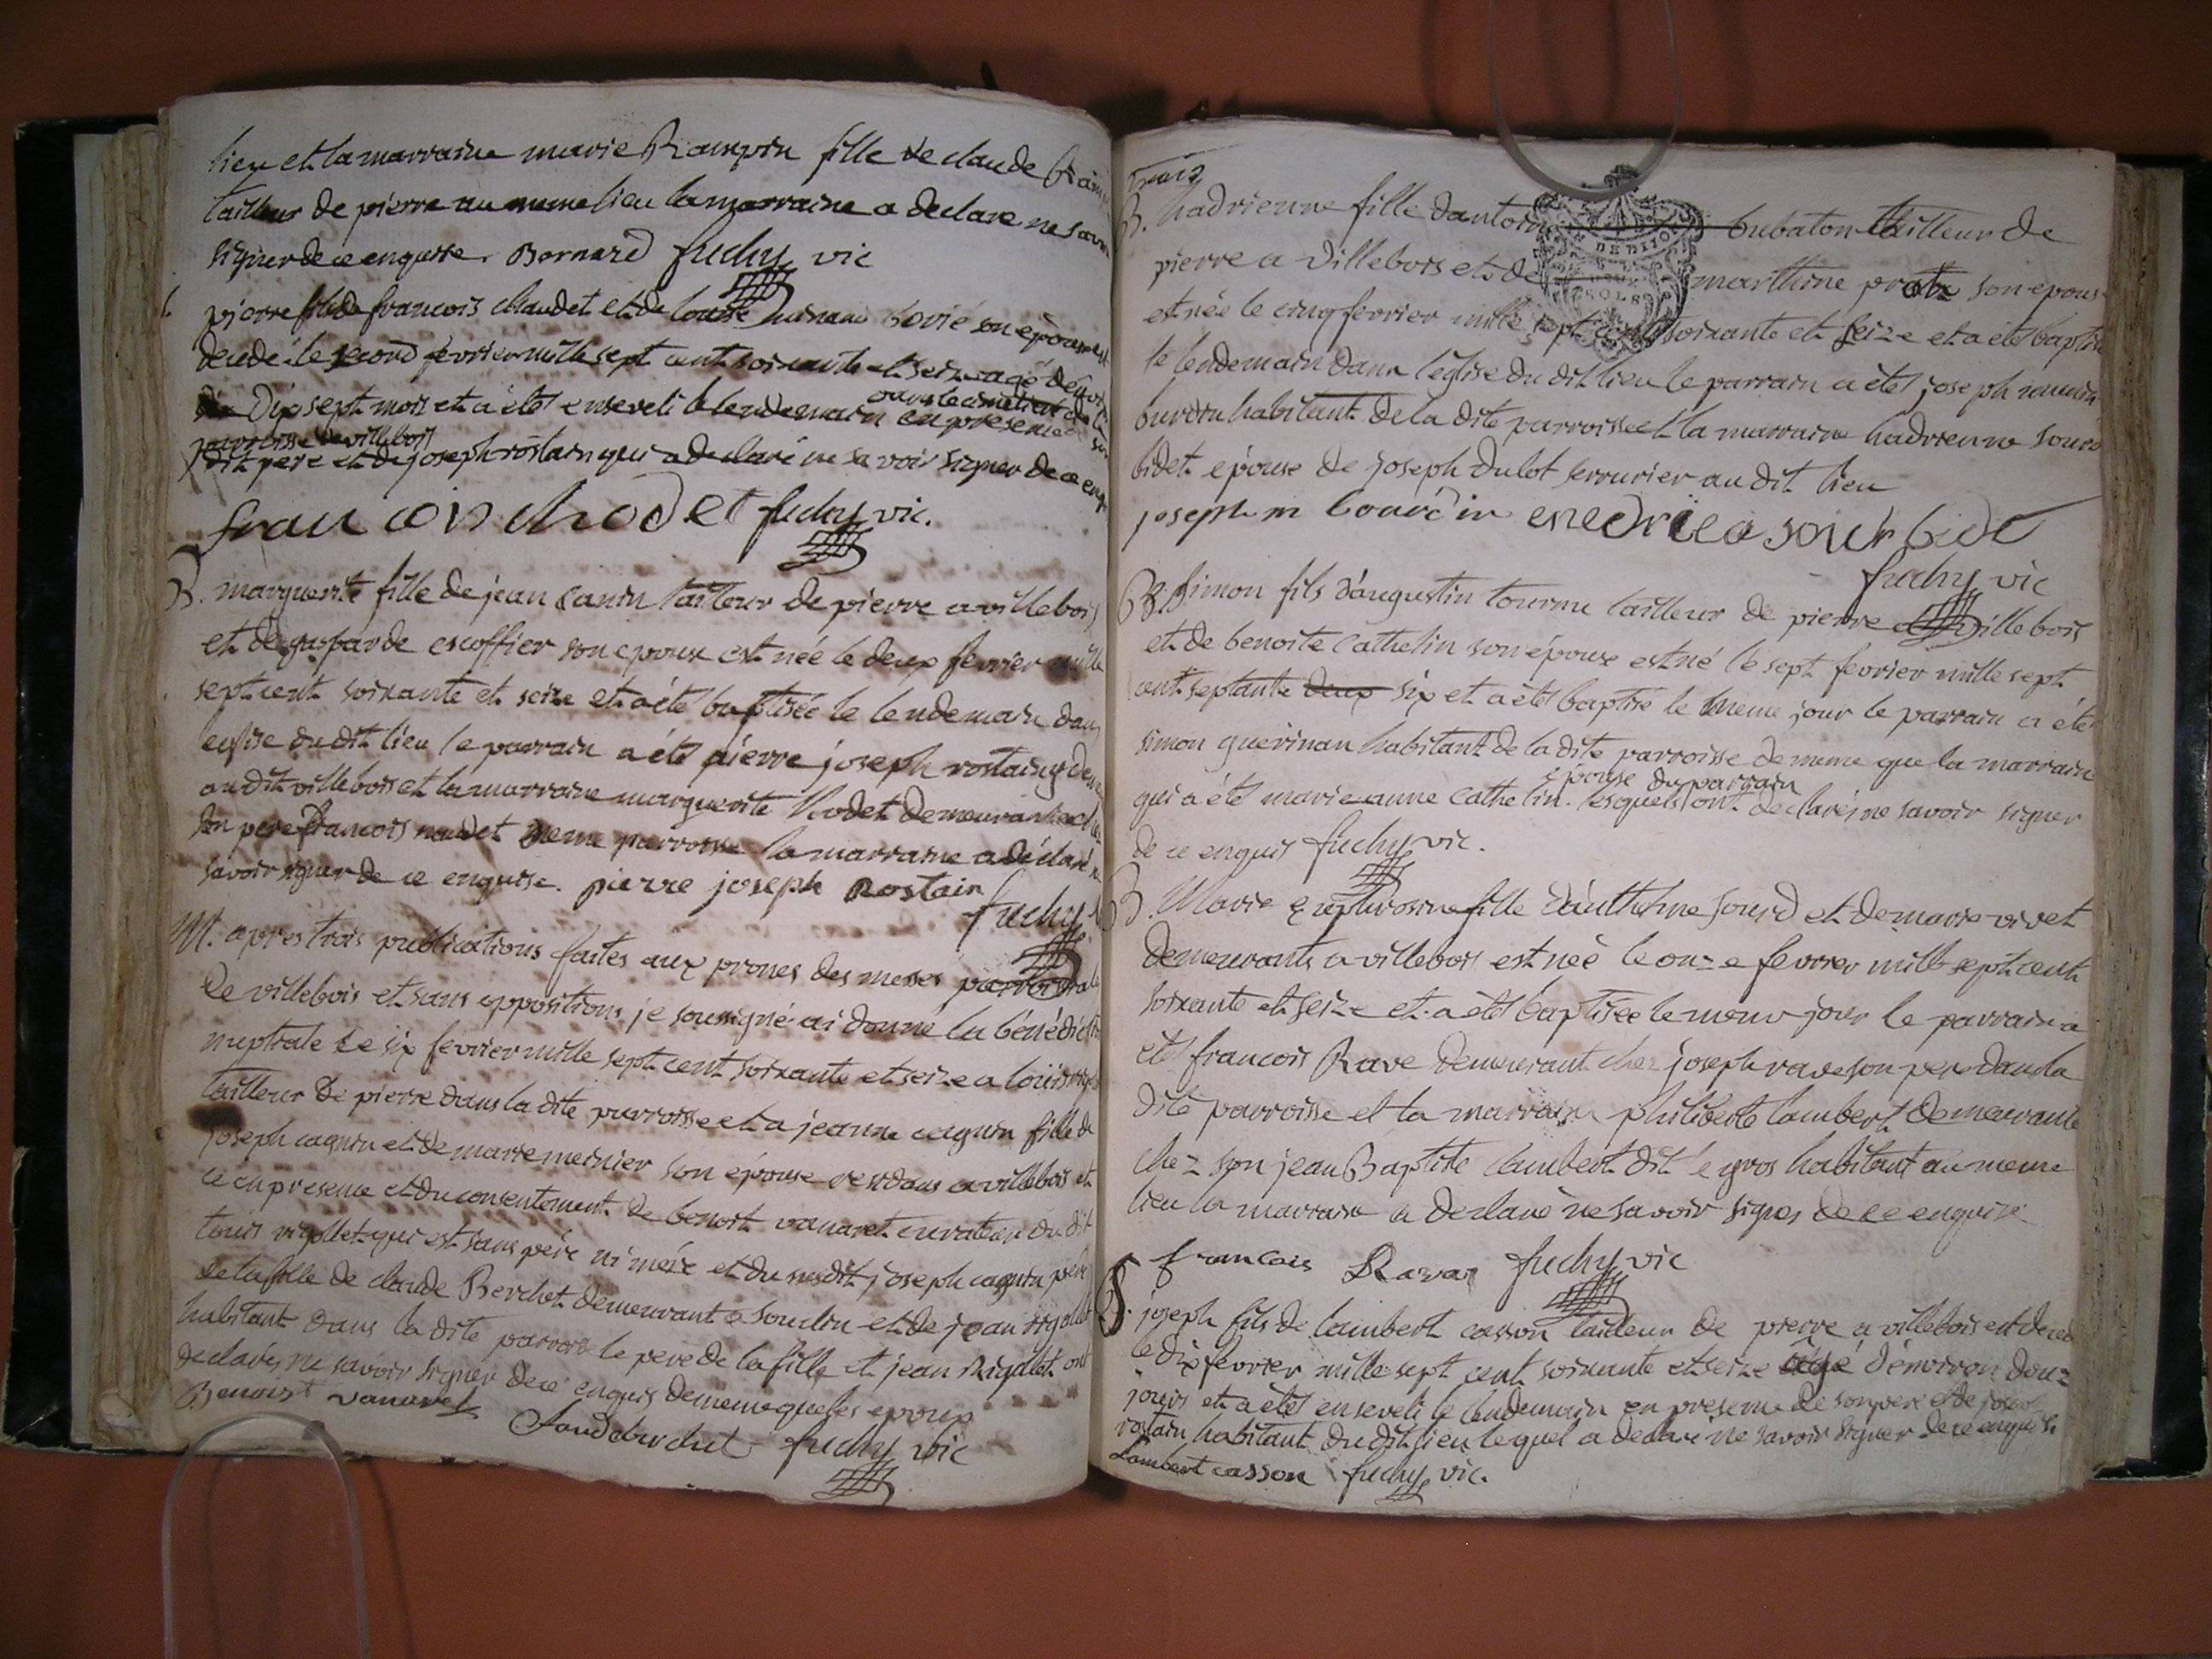 lieu et la marraine marie Rampin fille de claude
tailleur de pierre au meme lieu la marraine a declare ne savoir
signer de ce enquise. Bernard fuchy vic
pierre fils de francois chaudet et de louise son epouse est
decedé le second fevrier mille sept cent soixante et seize agé
Dix sept mois et a étét enseveli le lendemain dans le cimetiere de la en presence
parroisse de villebois
dit pere et de joseph rostain qui a declaré ne savoir signer de ce
francois chodet fuchy vic.
B. marguerite fille de jean tailleur de pierre a villebois
et de gasparde escoffier son epouse est née le deux fevrier mille
sept cent soixante et seize et a été baptisée le lendemain dans
eglise du dit lieu le parrain a étét pierre joseph rostaing
au dit villebois et la marraine marguerite demeurante chez
son pere francois meme parroisse la marraine a déclaré ne
savoir signer de ce enquise. pierre joseph Rostain
fuchy
M. apres trois publications faites aux prones des messes parroissiales
De villebois et sans oppositions je soussigné ai donné la bénédiction
nuptiale le six fevrier mille sept cent soixante et seize a loüis
tailleur De pierre dans la dite parroisse et a jeanne caguin fille de
joseph caguin et de marie meinier son épouse a villebois et
ce en presence et du consentement de benoit vanaret curateur du dit
louis rigollet qui est sans pére ni mére et du susdit joseph caguin pere
de la fille de claude Berchet demeurant a souclin et de jean rigollet
habitant dans la dite parroisse le pere de la fille et jean Rigollet ont
declarés ne savoir signer de ce enquis de meme que les epoux
Benoist vanaret
fuchy vic
B. hadrienne fille dantoine bubaton tailleur de
pierre a villebois et de marthine son epouse
est née le cinq fevrier mille sept cent soixante et seize et a étét baptisé
le lendemain dans l'église du dit lieu le parrain a étét joseph
burdin habitant de la dite parroisse et la marraine hadrienne sourd
bidet epouse de joseph dulot serrurier au dit lieu
joseph m bourdin
fuchy vic
B. Simon fils d'augustin tourne tailleur de pierre a villebois
et de benoite Cathelin son épouse est né le sept fevrier mille sept
cent septante deux six et a étét baptisé le meme jour le parrain a été
simon guerinan habitant de la dite parroisse de meme que la marraine
épouse du parrain
qui a étét marie anne Cathelin. lesquels ont declarés ne savoir signer
de ce enquis fuchy vic.
B. Marie euphrosine fille d'anthelme sourd et de marie vivet
demeurants a villebois est née le onze fevrier mille sept cent
soixante et seize et a étét baptisée le meme jour le parrain a
étét francois Rave demeurant chez joseph rave son pere dans la
dite parroisse et la marraine philiberte lambert demeurante
chez son jean Baptiste lambert dit le gros habitant au meme
lieu la marraine a declaré ne savoir signer de ce enquise
francois Ravas fuchy vic
S. joseph fils de lambert casson tailleur de pierre a villebois est decedé
le dix fevrier mille sept cent soixante et seize agé d'environ douze
jours et a étét enseveli le lendemain en presence de son pere et de
rostain habitant du dit lieu lequel a declaré ne savoir signer de ce enquis
Lambert casson fuchy vic.